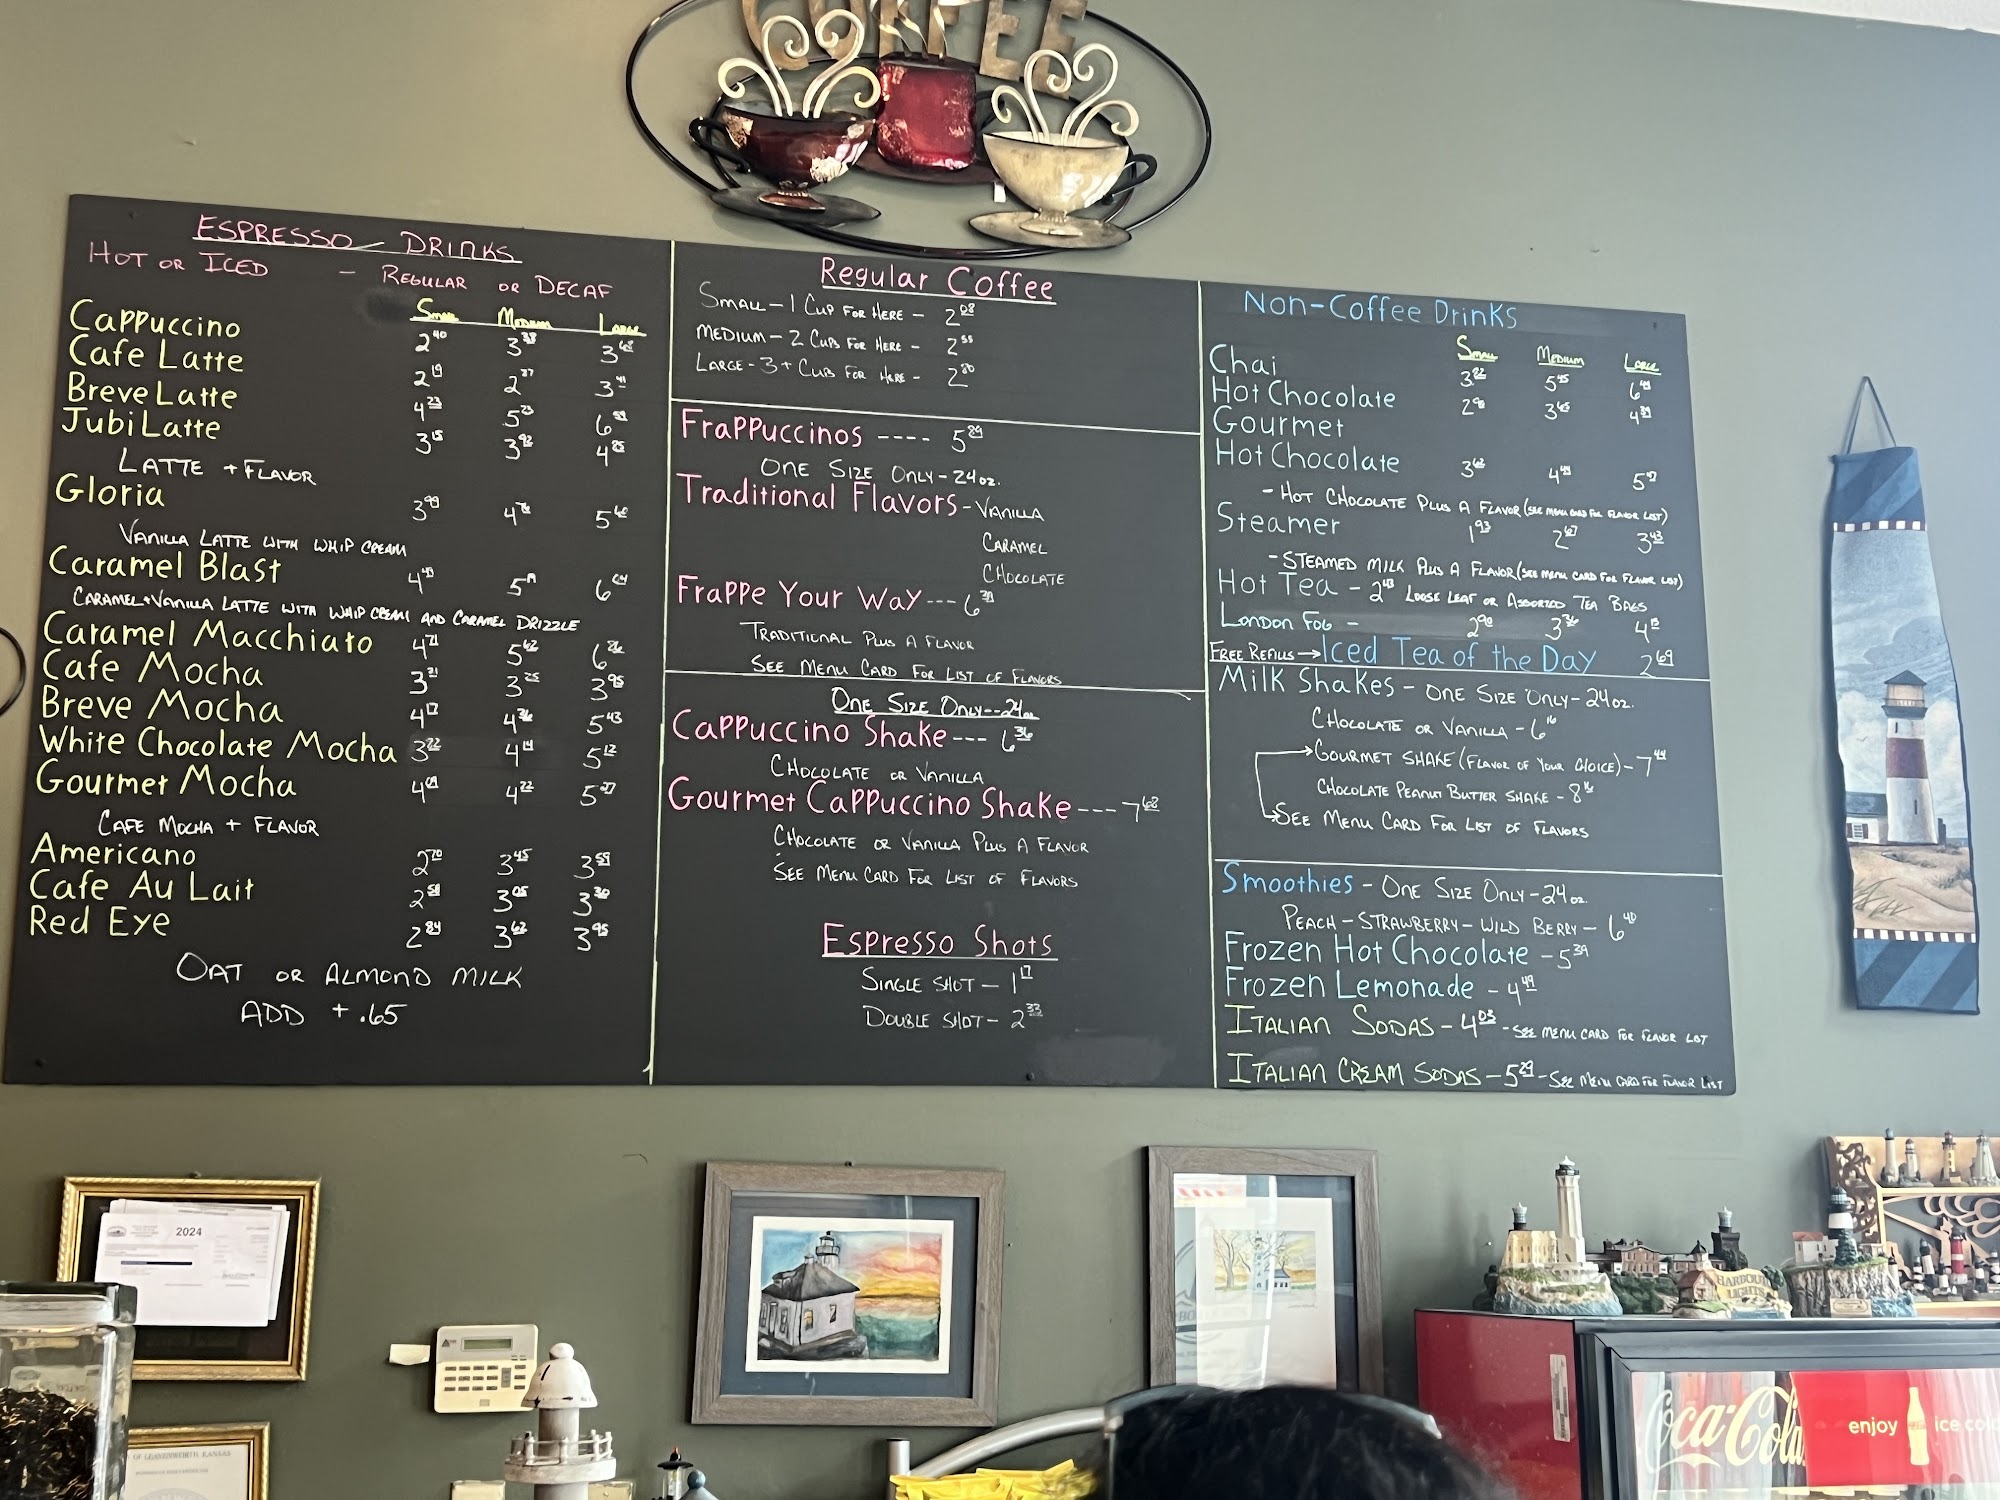 COFFEE
ESPRESSO DRINKS
HOT OR ICED - REGULAR OR DECAF
Small Medium Large
Cappuccino 2.40 3.38 3.68
Cafe Latte 2.19 2.87 3.41
Breve Latte 4.23 5.23 6.59
Jubi Latte 3.15 3.92 4.85
LATTE + FLAVOR
Gloria 3.99 4.76 5.60
VANILLA LATTE WITH WHIP CREAM
Caramel Blast 4.43 5.19 6.04
CARAMEL+VANILLA LATTE WITH WHIP CREAM AND CARAMEL DRIZZLE
Caramel Macchiato 4.71 5.62 6.26
Cafe Mocha 3.21 3.25 3.95
Breve Mocha 4.17 4.36 5.43
White Chocolate Mocha 3.22 4.14 5.12
Gourmet Mocha 4.09 4.22 5.27
CAFE MOCHA + FLAVOR
Americano 2.70 3.45 3.59
Cafe Au Lait 2.58 3.05 3.30
Red Eye 2.84 3.62 3.95
OAT OR ALMOND MILK
ADD + .65
Regular Coffee
SMALL - 1 CUP FOR HERE - 2.08
MEDIUM - 2 CUPS FOR HERE - 2.55
LARGE - 3+ CUB FOR HERE - 2.80
Frappuccinos ---- 5.89
ONE SIZE ONLY - 24oz.
Traditional Flavors - VANILLA
CARAMEL
CHOCOLATE
Frappe Your Way --- 6.39
TRADITIONAL PLUS A FLAVOR
SEE MENU CARD FOR LIST OF FLAVORS
ONE SIZE ONLY--24oz
Cappuccino Shake --- 6.36
CHOCOLATE OR VANILLA
Gourmet Cappuccino Shake --- 7.68
CHOCOLATE OR VANILLA PLUS A FLAVOR
SEE MENU CARD FOR LIST OF FLAVORS
Espresso Shots
SINGLE SHOT - 1.17
DOUBLE SHOT - 2.33
Non-Coffee Drinks
Small Medium Large
Chai 3.82 5.45 6.49
Hot Chocolate 2.90 3.65 4.39
Gourmet
Hot Chocolate 3.62 4.49 5.17
- HOT CHOCOLATE PLUS A FLAVOR (SEE MENU CARD FOR FLAVOR LIST)
Steamer 1.93 2.67 3.43
- STEAMED MILK PLUS A FLAVOR (SEE MENU CARD FOR FLAVOR LIST)
Hot Tea - 2.43 LOOSE LEAF OR ASSORTED TEA BAGS
LONDON FOG - 2.90 3.36 4.15
FREE REFILLS → Iced Tea of the Day 2.69
Milk Shakes - ONE SIZE ONLY - 24oz.
CHOCOLATE OR VANILLA - 6.16
GOURMET SHAKE (FLAVOR OF YOUR CHOICE) - 7.44
CHOCOLATE PEANUT BUTTER SHAKE - 8.16
SEE MENU CARD FOR LIST OF FLAVORS
Smoothies - ONE SIZE ONLY - 24oz.
PEACH - STRAWBERRY - WILD BERRY - 6.40
Frozen Hot Chocolate - 5.39
Frozen Lemonade - 4.49
ITALIAN SODAS - 4.03 - SEE MENU CARD FOR FLAVOR LIST
ITALIAN CREAM SODAS - 5.29 - SEE MENU CARD FOR FLAVOR LIST
2024
OF LEAVENWORTH KANSAS
HARBOUR
LIGHTS
Coca-Cola
enjoy ice cold